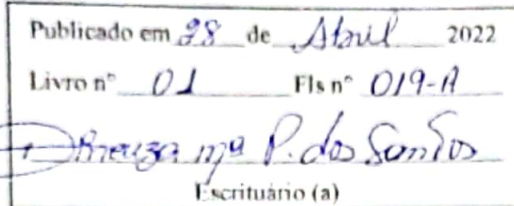 Publicado em 28 de Abril 2022
Livro nº 01 Fls nº 019-A
mª P. dos Santos
Escrituário (a)